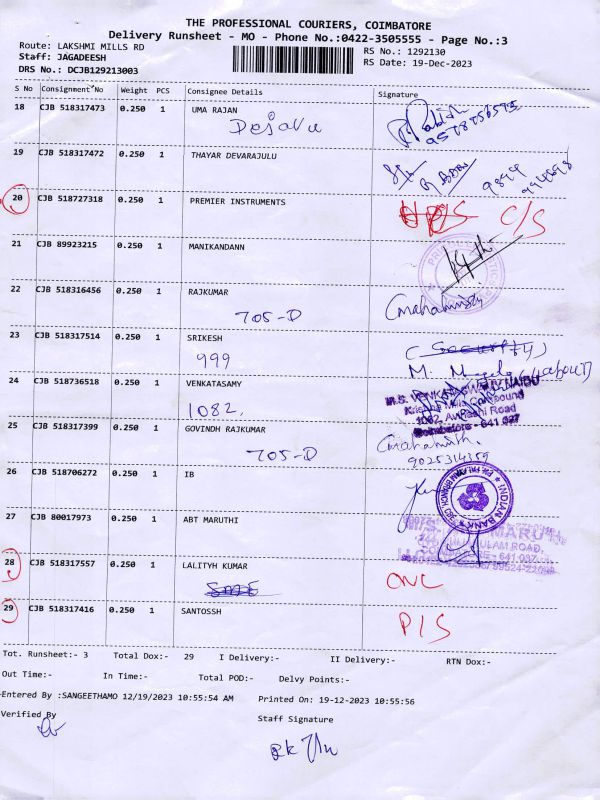 THE PROFESSIONAL COURIERS, COIMBATORE
Delivery Runsheet - MO - Phone No.:0422-3505555 - Page No.:3
Route: LAKSHMI MILLS RD
RS No.: 1292130
Staff: JAGADEESH
RS Date: 19-Dec-2023
DRS No.: DCJB129213003
S No Consignment No Weight PCS Consignee Details Signature
18 CJB 518317473 0.250 1 UMA RAJAN
Dejavu
19 CJB 518317472 0.250 1 THAYAR DEVARAJULU
20 CJB 518727318 0.250 1 PREMIER INSTRUMENTS C/S
21 CJB 89923215 0.250 1 MANIKANDANN
22 CJB 518316456 0.250 1 RAJKUMAR
705-D
23 CJB 518317514 0.250 1 SRIKESH
999
(Security)
24 CJB 518736518 0.250 1 VENKATASAMY
1082,
1082, Avinashi Road
Coimbatore - 641 037
25 CJB 518317399 0.250 1 GOVINDH RAJKUMAR
705-D
9025314359
26 CJB 518706272 0.250 1 IB
INDIAN BANK
27 CJB 80017973 0.250 1 ABT MARUTHI
28 CJB 518317557 0.250 1 LALITYH KUMAR
CNC
29 CJB 518317416 0.250 1 SANTOSSH
P/S
Tot. Runsheet:- 3 Total Dox:- 29 I Delivery:- II Delivery:- RTN Dox:-
Out Time:- In Time:- Total POD:- Delvy Points:-
Entered By :SANGEETHAMO 12/19/2023 10:55:54 AM Printed On: 19-12-2023 10:55:56
Verified By
Staff Signature